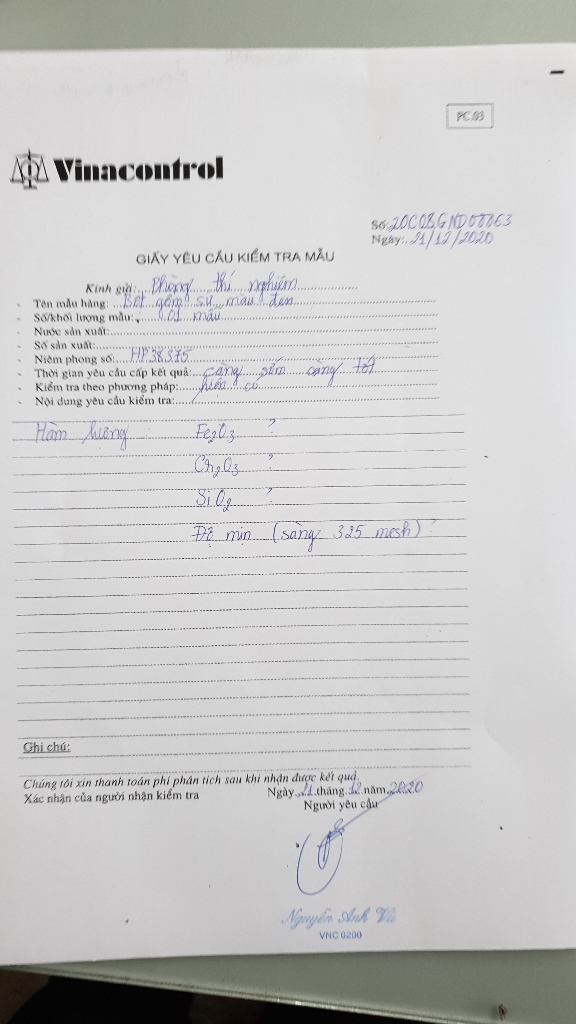 PC.03
Vinacontrol
Số: 20C08GND08863
Ngày: 21/12/2020
GIẤY YÊU CẦU KIỂM TRA MẪU
Kính gửi: Phòng thí nghiệm
- Tên mẫu hàng: Bột gốm sứ màu đen
- Số/khối lượng mẫu: 01 mẫu
- Nước sản xuất:
- Số sản xuất:
- Niêm phong số: HP38375
- Thời gian yêu cầu cấp kết quả: càng sớm càng tốt
- Kiểm tra theo phương pháp: hiện có
- Nội dung yêu cầu kiểm tra:
Hàm lượng Fe2O3 ?
Cr2O3 ?
SiO2 ?
Độ mịn (sàng 325 mesh) ?
Ghi chú:
Chúng tôi xin thanh toán phí phân tích sau khi nhận được kết quả.
Xác nhận của người nhận kiểm tra Ngày 21 tháng 12 năm 2020
Người yêu cầu
Nguyễn Anh Vũ
VNC 0200